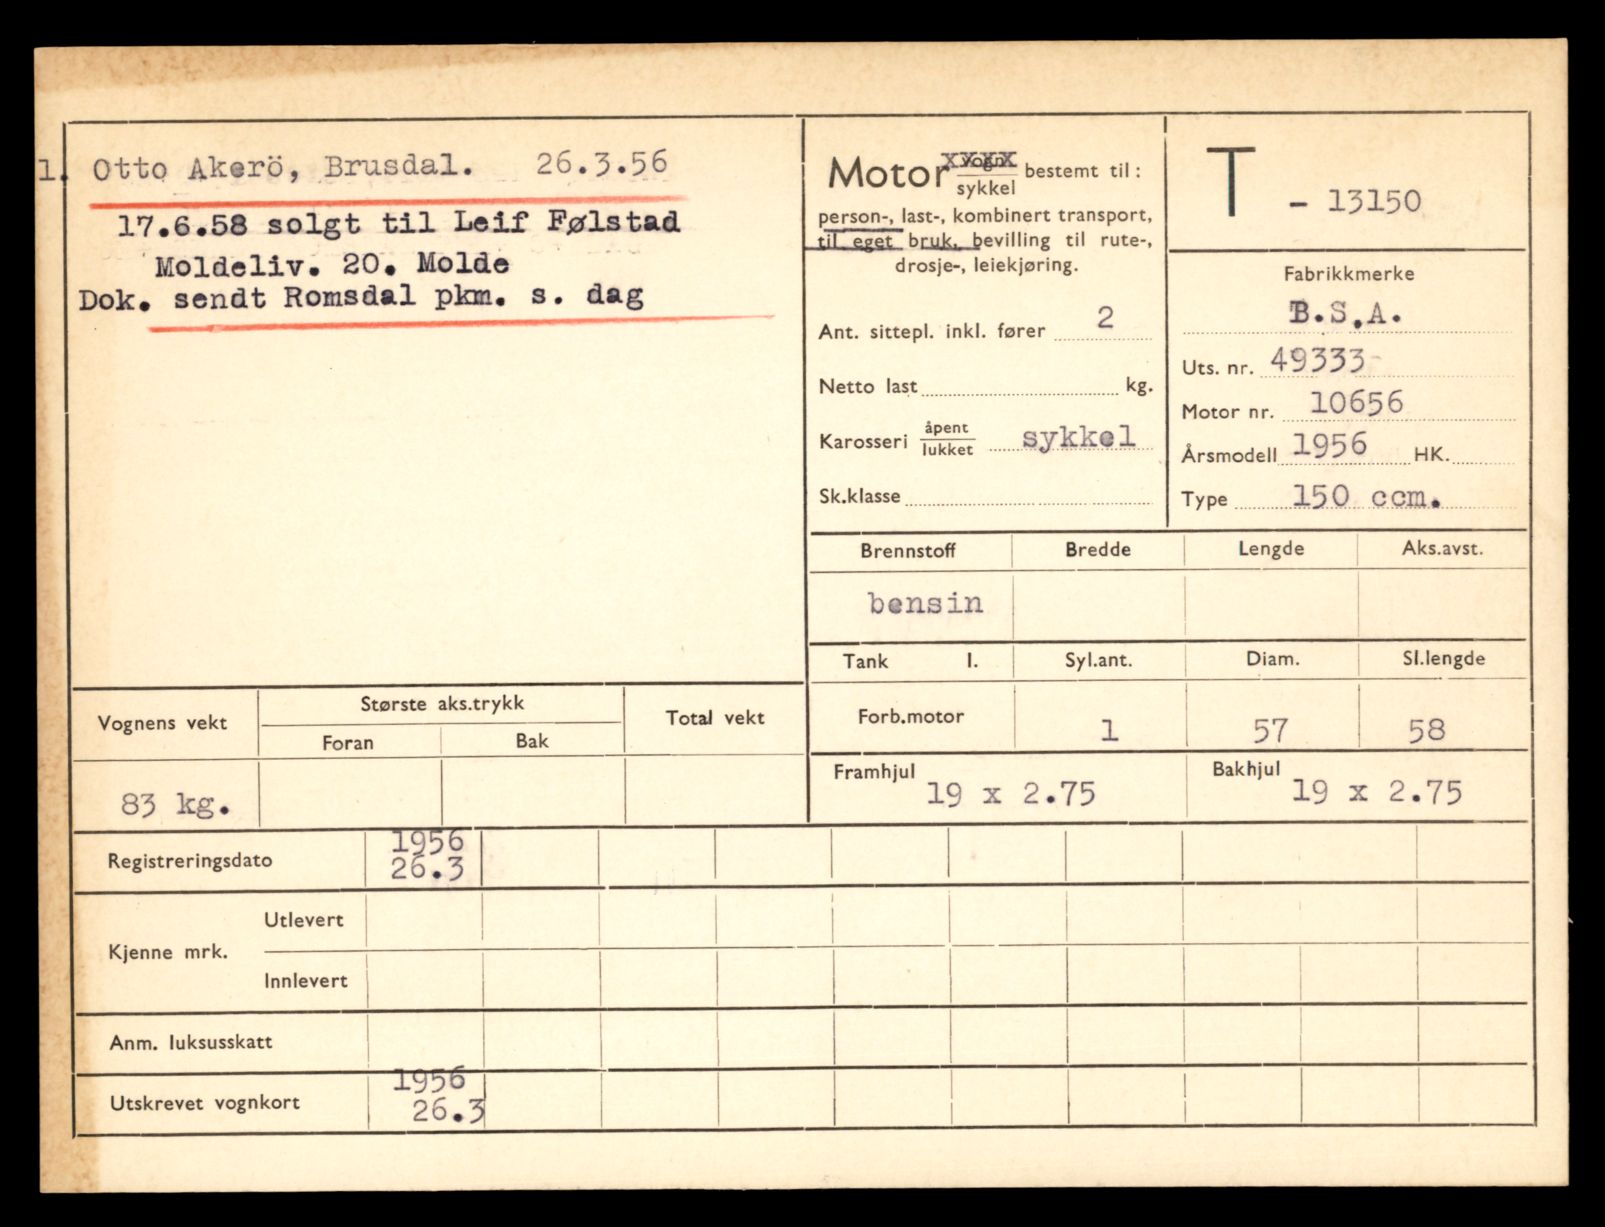 1. Otto Akerö, Brusdal. 26.3.56
17.6.58 solgt til Leif Følstad
Moldeliv. 20. Molde
Dok. sendt Romsdal pkm. s. dag
Motor vogn xxxx
sykkel bestemt til:
person-, last-, kombinert transport,
til eget bruk, bevilling til rute-,
drosje-, leiekjøring.
Ant. sittepl. inkl. fører 2
Netto last kg.
Karosseri åpent
lukket sykkel
Sk.klasse
T - 13150
Fabrikkmerke
B.S.A.
Uts. nr. 49333
Motor nr. 10656
Årsmodell 1956 HK.
Type 150 ccm.
Brennstoff Bredde Lengde Aks.avst.
bensin
Tank l. Syl.ant. Diam. Sl.lengde
Forb.motor 1 57 58
Framhjul 19 x 2.75 Bakhjul 19 x 2.75
Vognens vekt Største aks.trykk Total vekt
Foran Bak
83 kg.
Registreringsdato 1956
26.3
Kjenne mrk. Utlevert
Innlevert
Anm. luksusskatt
Utskrevet vognkort 1956
26.3